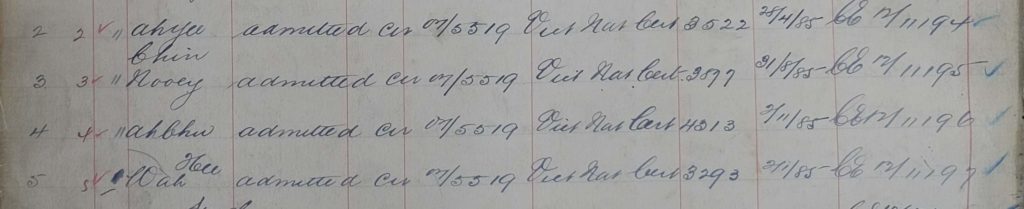 2 2 " ah yee admitted cer 07/5519 Vict Nat Cert 3522 28/4/85 CE 12/11194
Chin
3 3 " Nooey admitted cer 07/5519 Vict Nat Cert 3877 31/8/85 CE 12/11195
4 4 " ah admitted cer 07/5519 Vict Nat Cert 4313 2/11/85 CE 12/11196
Hee
5 5 Wah admitted cer 07/5519 Vict Nat Cert 3293 CE 12/11197